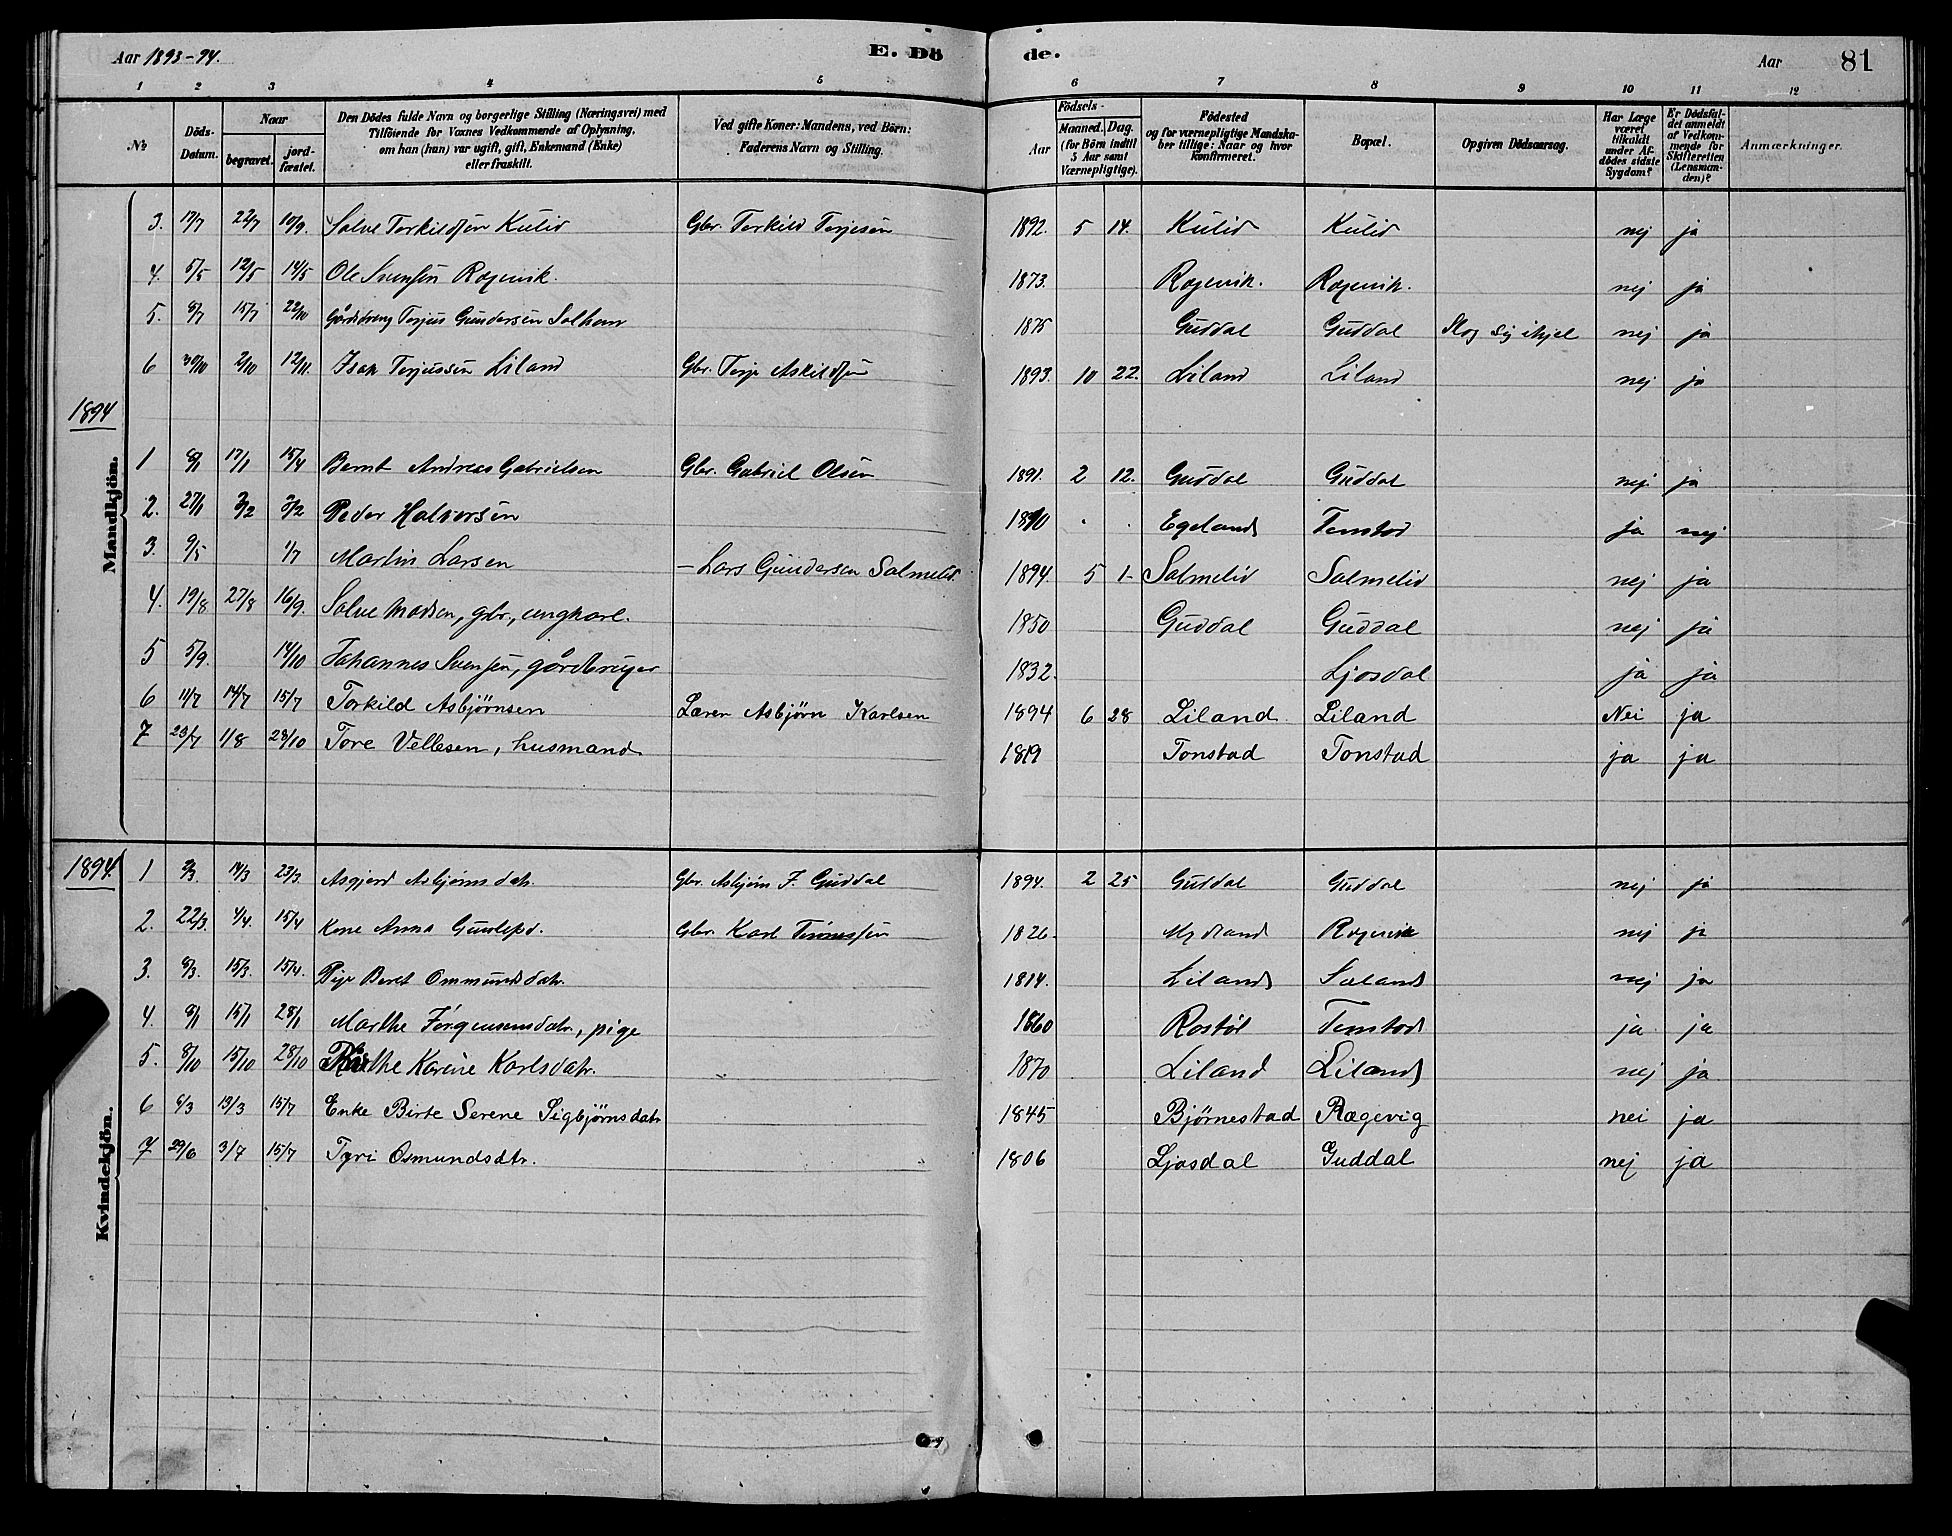 Aar 1893-94. E. Dö de. Aar 81
1 2 3 4 5 6 7 8 9 10 11 12
No. Döds-Datum. Naar begravet. jordfæstet. Den Dödes fulde Navn og borgerlige Stilling (Næringsvei) med Tilföiende for Voxnes Vedkommende af Oplysning, om han (hun) var ugift, gift, Enkemand (Enke) eller fraskilt. Ved gifte Koner: Mandens, ved Börn: Faderens Navn og Stilling. Födsels- Aar Maaned. Dag. (for Börn indtil 5 Aar samt Værnepligtige). Födested og for værnepligtige Mandskaber tillige: Naar og hvor konfirmeret. Bopæl. Opgiven Dödsaarsag. Har Læge været tilkaldt under Afdödes sidste Sygdom? Er Dödsfaldet anmeldt af Vedkommende for Skifteretten (Lensmanden)? Anmærkninger.
Mandkjön.
3. 17/7 22/7 10/9. Salve Torkildsen Kulid Gbr. Torkild Terjesen 1892. 5 14. Kulid Kulid nej ja
4. 5/5 12/5 14/5 Ole Svensen Rægevik. 1873. Rægevik. Rægevik. nej ja
5. 8/7 15/7 22/10 Gårdsdreng Terjus Gundersen Solhom 1875 Guddal Guddal Slog sig ihjel nej ja
6 30/10 2/10 12/11. Isak Terjussen Liland Gbr. Terje Askildsen 1893. 10 22. Liland Liland nej ja
1894
1 8/1 17/1 15/4 Bernt Andreas Gabrielsen Gbr. Gabriel Olsen 1891. 2 12. Guddal Guddal nej ja
2. 27/1 3/2 3/2 Peder Halvorsen 1810 Egeland Tonstad ja nej
3. 9/5 1/7 Martin Larsen - Lars Gundersen Salmelid. 1894. 5 1- Salmelid Salmelid nej ja
4. 19/8 27/8 16/9. Salve Madsen, gbr., ungkarl. 1850 Guddal Guddal nej ja
5 5/9. 14/10 Johannes Svensen, gårdbruger 1832. Ljosdal ja ja
6 11/7 14/7 15/7 Torkild Asbjørnsen Lærer Asbjørn Karlsen 1894 6 28 Liland Liland Nei ja
7 23/7 1/8 28/10 Tore Vellesen, husmand 1819 Tonstad Tonstad ja ja
1894. Kvindekjön.
1 2/3. 14/3 23/3. Asgjerd Asbjørnsdatr. Gbr. Asbjørn F. Guddal 1894. 2 25 Guddal Guddal nej ja
2. 22/3. 4/4. 15/4 Kone Anna Gunlepsd. Gbr. Karl Tønnessen 1826. Mydland Rægevik nej ja
3. 8/3. 15/3. 15/4. Pige Beret Ommundsdatr. 1814. Liland Sæland nej ja
4. 8/1 15/1 28/1 Marthe Jørgensensdatr., pige 1860 Rostøl Tonstad ja ja
5. 8/10 15/10 28/10 Karine Karlsdatr. 1870 Liland Liland nej ja
6 6/3 13/3 15/7 Enke Birte Serene Sigbjørnsdatr 1845 Bjørnestad Rægevig nei ja
7 29/6 3/7 15/7 Tyri Osmundsdtr. 1806 Ljosdal Guddal nej ja